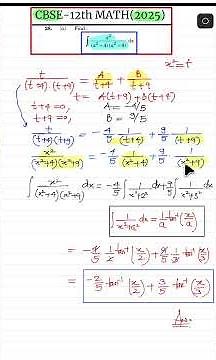 CBSE-12th MATH(2025)
28. (a) Find:
∫ x²/((x²+4)(x²+9)) dx
x² = t
t/((t+4)·(t+9)) = A/(t+4) + B/(t+9)
t = A(t+9) + B(t+4)
t+4=0, A = -4/5
t+9=0, B = 9/5
t/((t+4)(t+9)) = -4/5 1/(t+4) + 9/5 1/(t+9)
x²/((x²+4)(x²+9)) = -4/5 1/(x²+4) + 9/5 1/(x²+9)
∫ x²/((x²+4)(x²+9)) dx = -4/5 ∫ 1/(x²+2²) dx + 9/5 ∫ 1/(x²+3²) dx
∫ 1/(x²+a²) dx = 1/a tan⁻¹(x/a)
= -4/5 · 1/2 tan⁻¹(x/2) + 9/5 · 1/3 tan⁻¹(x/3)
= -2/5 tan⁻¹(x/2) + 3/5 tan⁻¹(x/3)
Ans.